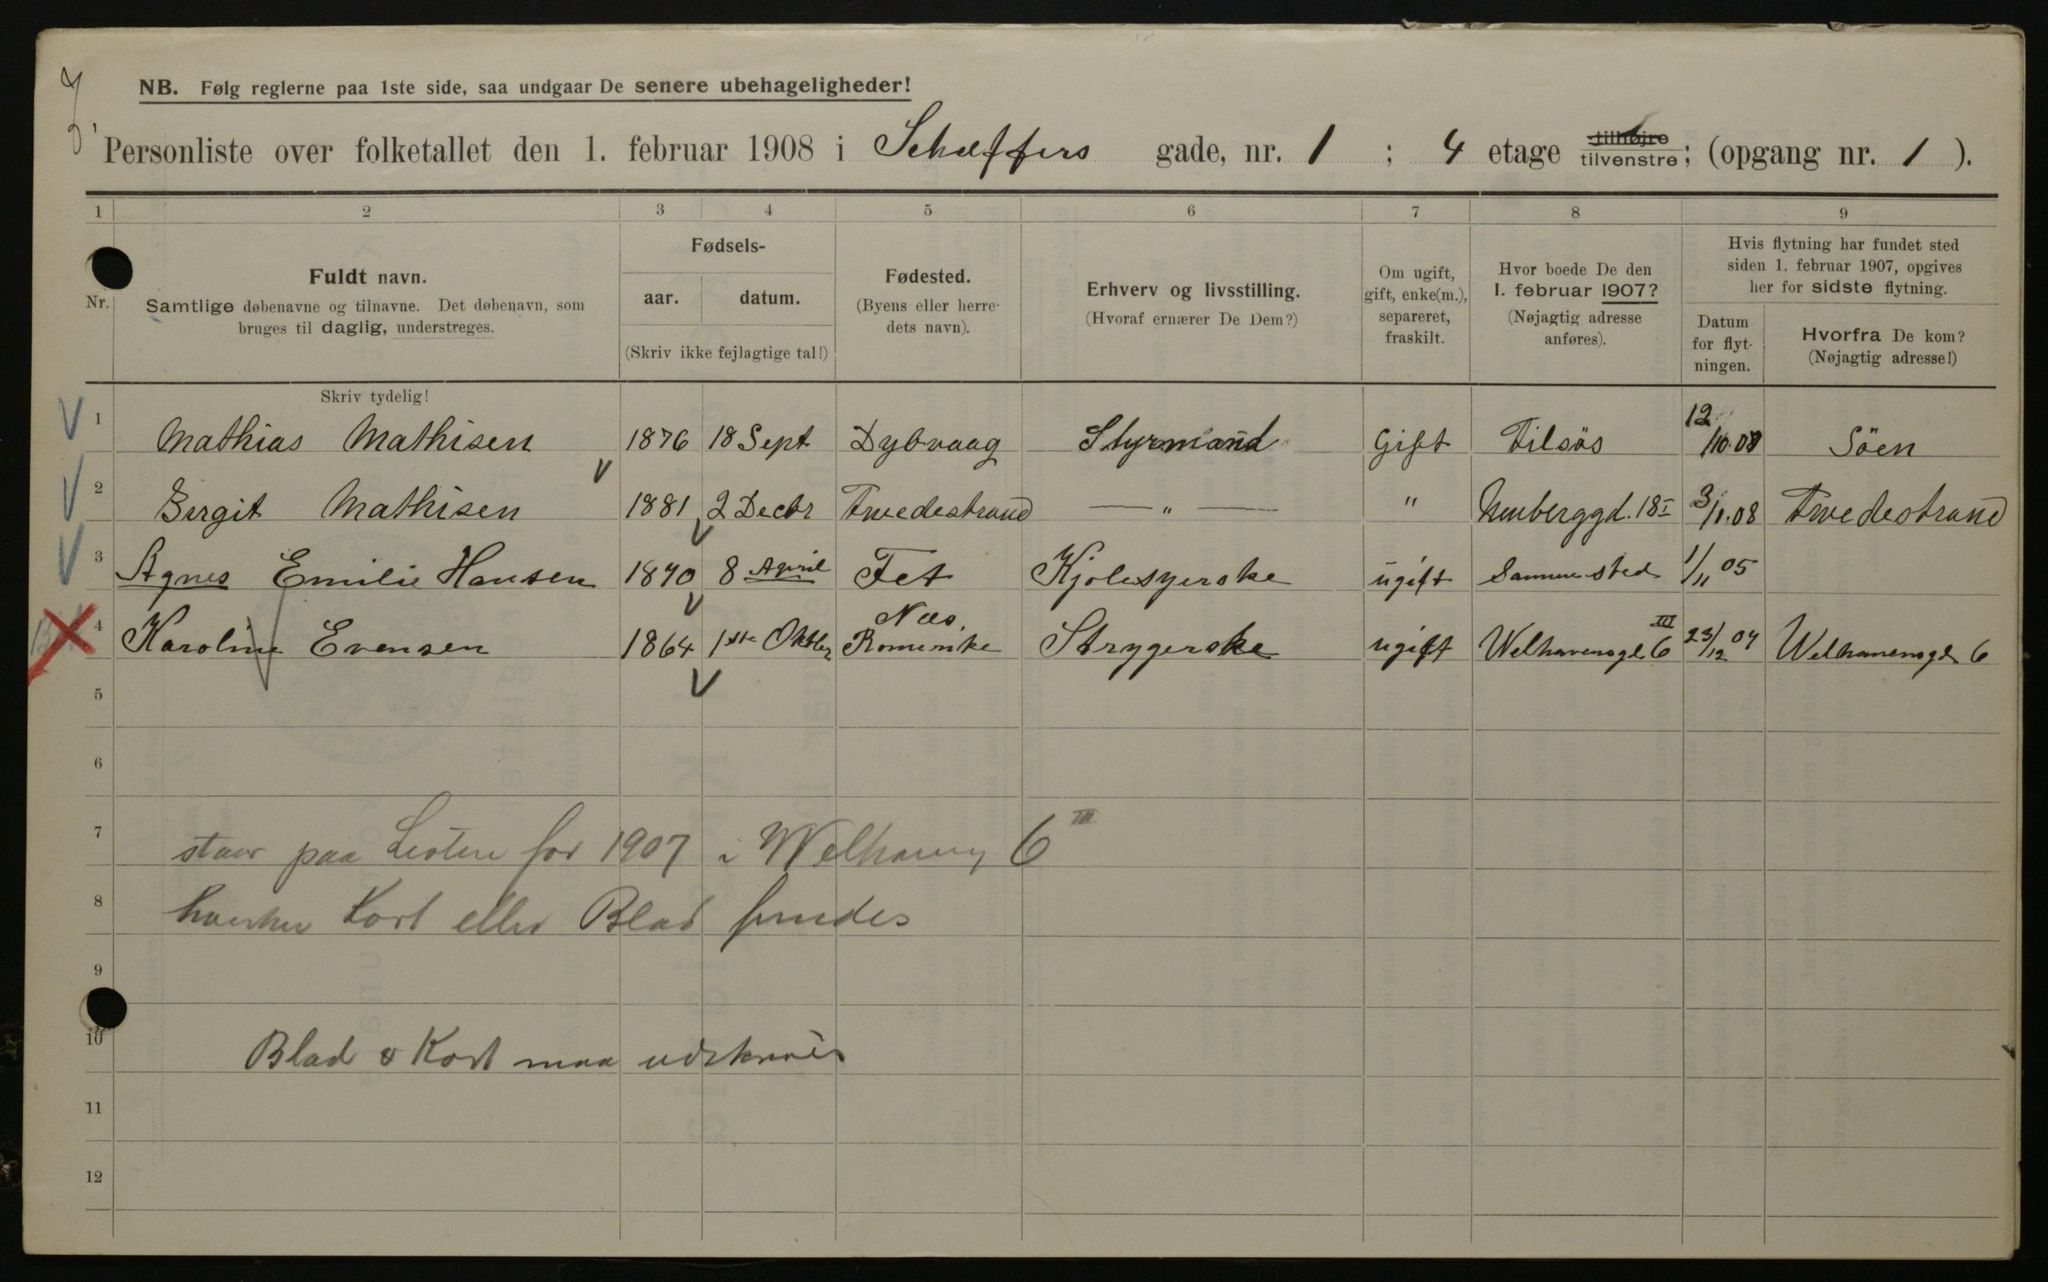 NB. Følg reglerne paa 1ste side, saa undgaar De senere ubehageligheder!
Personliste over folketallet den 1. februar 1908 i Schæffers gade, nr. 1 ; 4 etage tilhøjre tilvenstre; (opgang nr. 1 ).
1 2 3 4 5 6 7 8 9
Nr.
Fuldt navn.
Samtlige døbenavne og tilnavne. Det døbenavn, som
bruges til daglig, understreges.
Fødsels-
aar. datum.
(Skriv ikke fejlagtige tal!)
Fødested.
(Byens eller herre-
dets navn).
Erhverv og livsstilling.
(Hvoraf ernærer De Dem?)
Om ugift,
gift, enke(m.),
separeret,
fraskilt.
Hvor boede De den
1. februar 1907?
(Nøjagtig adresse
anføres).
Hvis flytning har fundet sted
siden 1. februar 1907, opgives
her for sidste flytning.
Datum
for flyt-
ningen.
Hvorfra De kom?
(Nøjagtig adresse!)
Skriv tydelig!
1 Mathias Mathisen 1876 18 Sept Dybvaag Styrmand Gift Tilsös 12/10.08 Söen
2 Birgit Mathisen 1881 2 Decbr Tvedestrand — " — " 18 I 3/1.08 Tvedestrand
3 Agnes Emilie Hansen 1870 8 April Fet Kjolesyerske ugift Samme sted 1/11 05
4 Karoline Evensen 1864 1ste Oktbr Næs. Romerike Strygerske ugift Welhavensgd. 6 III 23/12 07 Welhavensgd 6
5
6
7 staar paa Listen for 1907 i Welhavensg 6 III
8 hverken Kort eller Blad findes
9
10 Blad & Kort maa udskrives
11
12